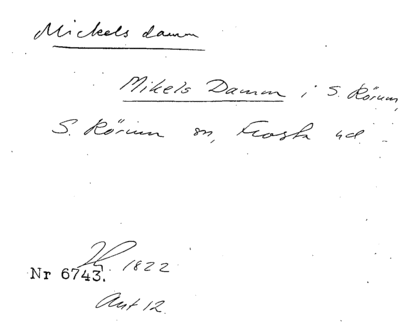 Mickels damm
Mikels Damm i S. Rörum,
S. Rörum sn, Frosta hd.
1822
Nr 6743.
Akt 12.